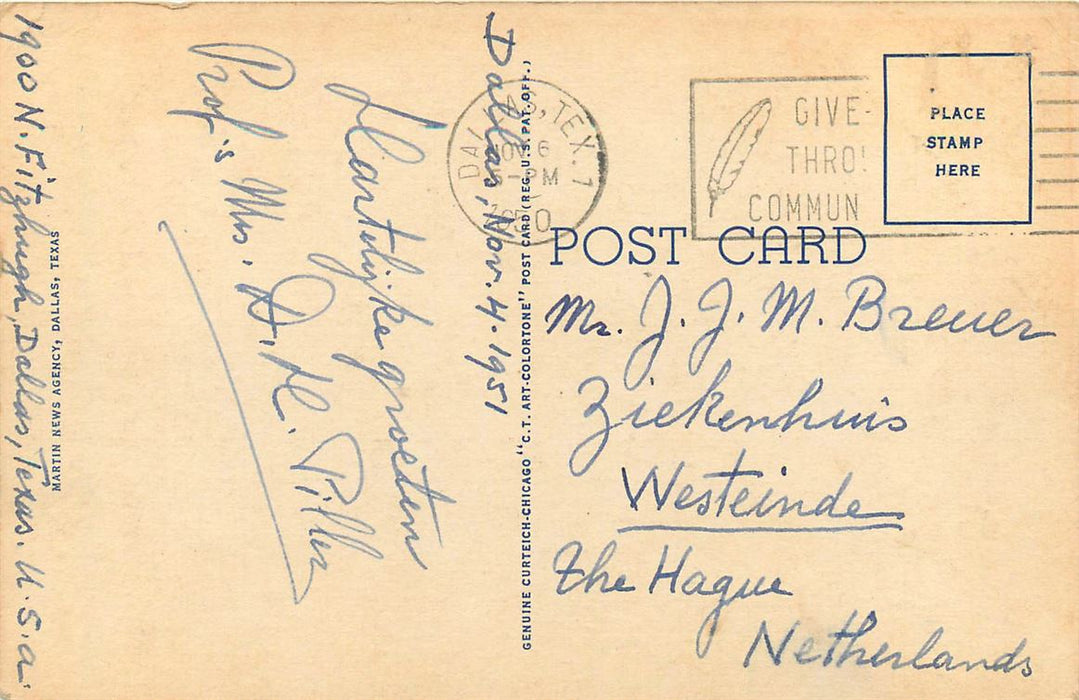 Dallas, Nov. 4. 1951
Hartelijke groeten
Prof's Mrs. D. H. Piller
1900 N. Fitzhugh, Dallas, Texas. U.S.a.
MARTIN NEWS AGENCY, DALLAS, TEXAS
GENUINE CURTEICH-CHICAGO "C.T. ART-COLORTONE" POST CARD (REG. U.S. PAT. OFF.)
DALLAS, TEX. 1
NOV 6
-PM
1950
GIVE-
THRO!
COMMUN
PLACE
STAMP
HERE
POST CARD
Mr. J. J. M. Breuer
Ziekenhuis
Westeinde
The Hague
Netherlands